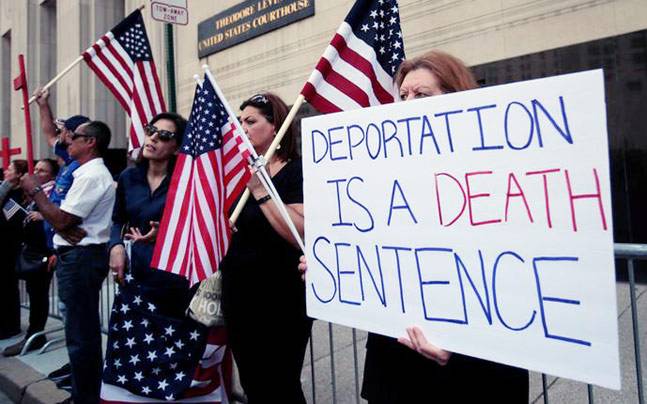 TOW-AWAY
ZONE
THEODORE LEVIN
UNITED STATES COURTHOUSE
DEPORTATION
IS A DEATH
SENTENCE